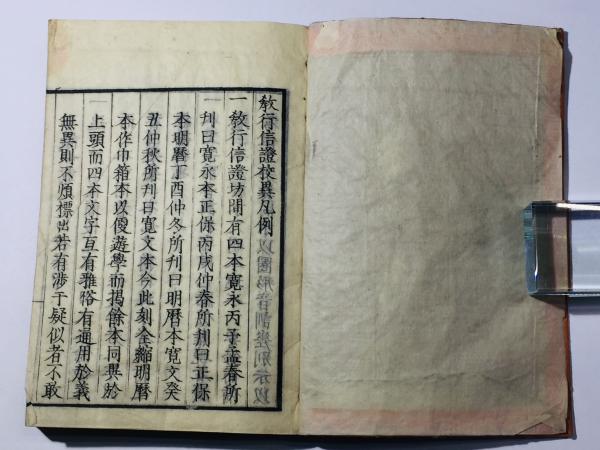 教行信證校異凡例
一 教行信證坊間有四本寛永丙子孟春所
刋曰寛永本正保丙戌仲春所刋曰正保
本明曆丁酉仲冬所刋曰明曆本寛文癸
丑仲秋所刋曰寛文本今此刻全縮明曆
本作巾箱本以優遊學而揭餘本同異於
上頭而四本文字互有雅俗有通用於義
無異則不煩標出若有涉于疑似者不敢